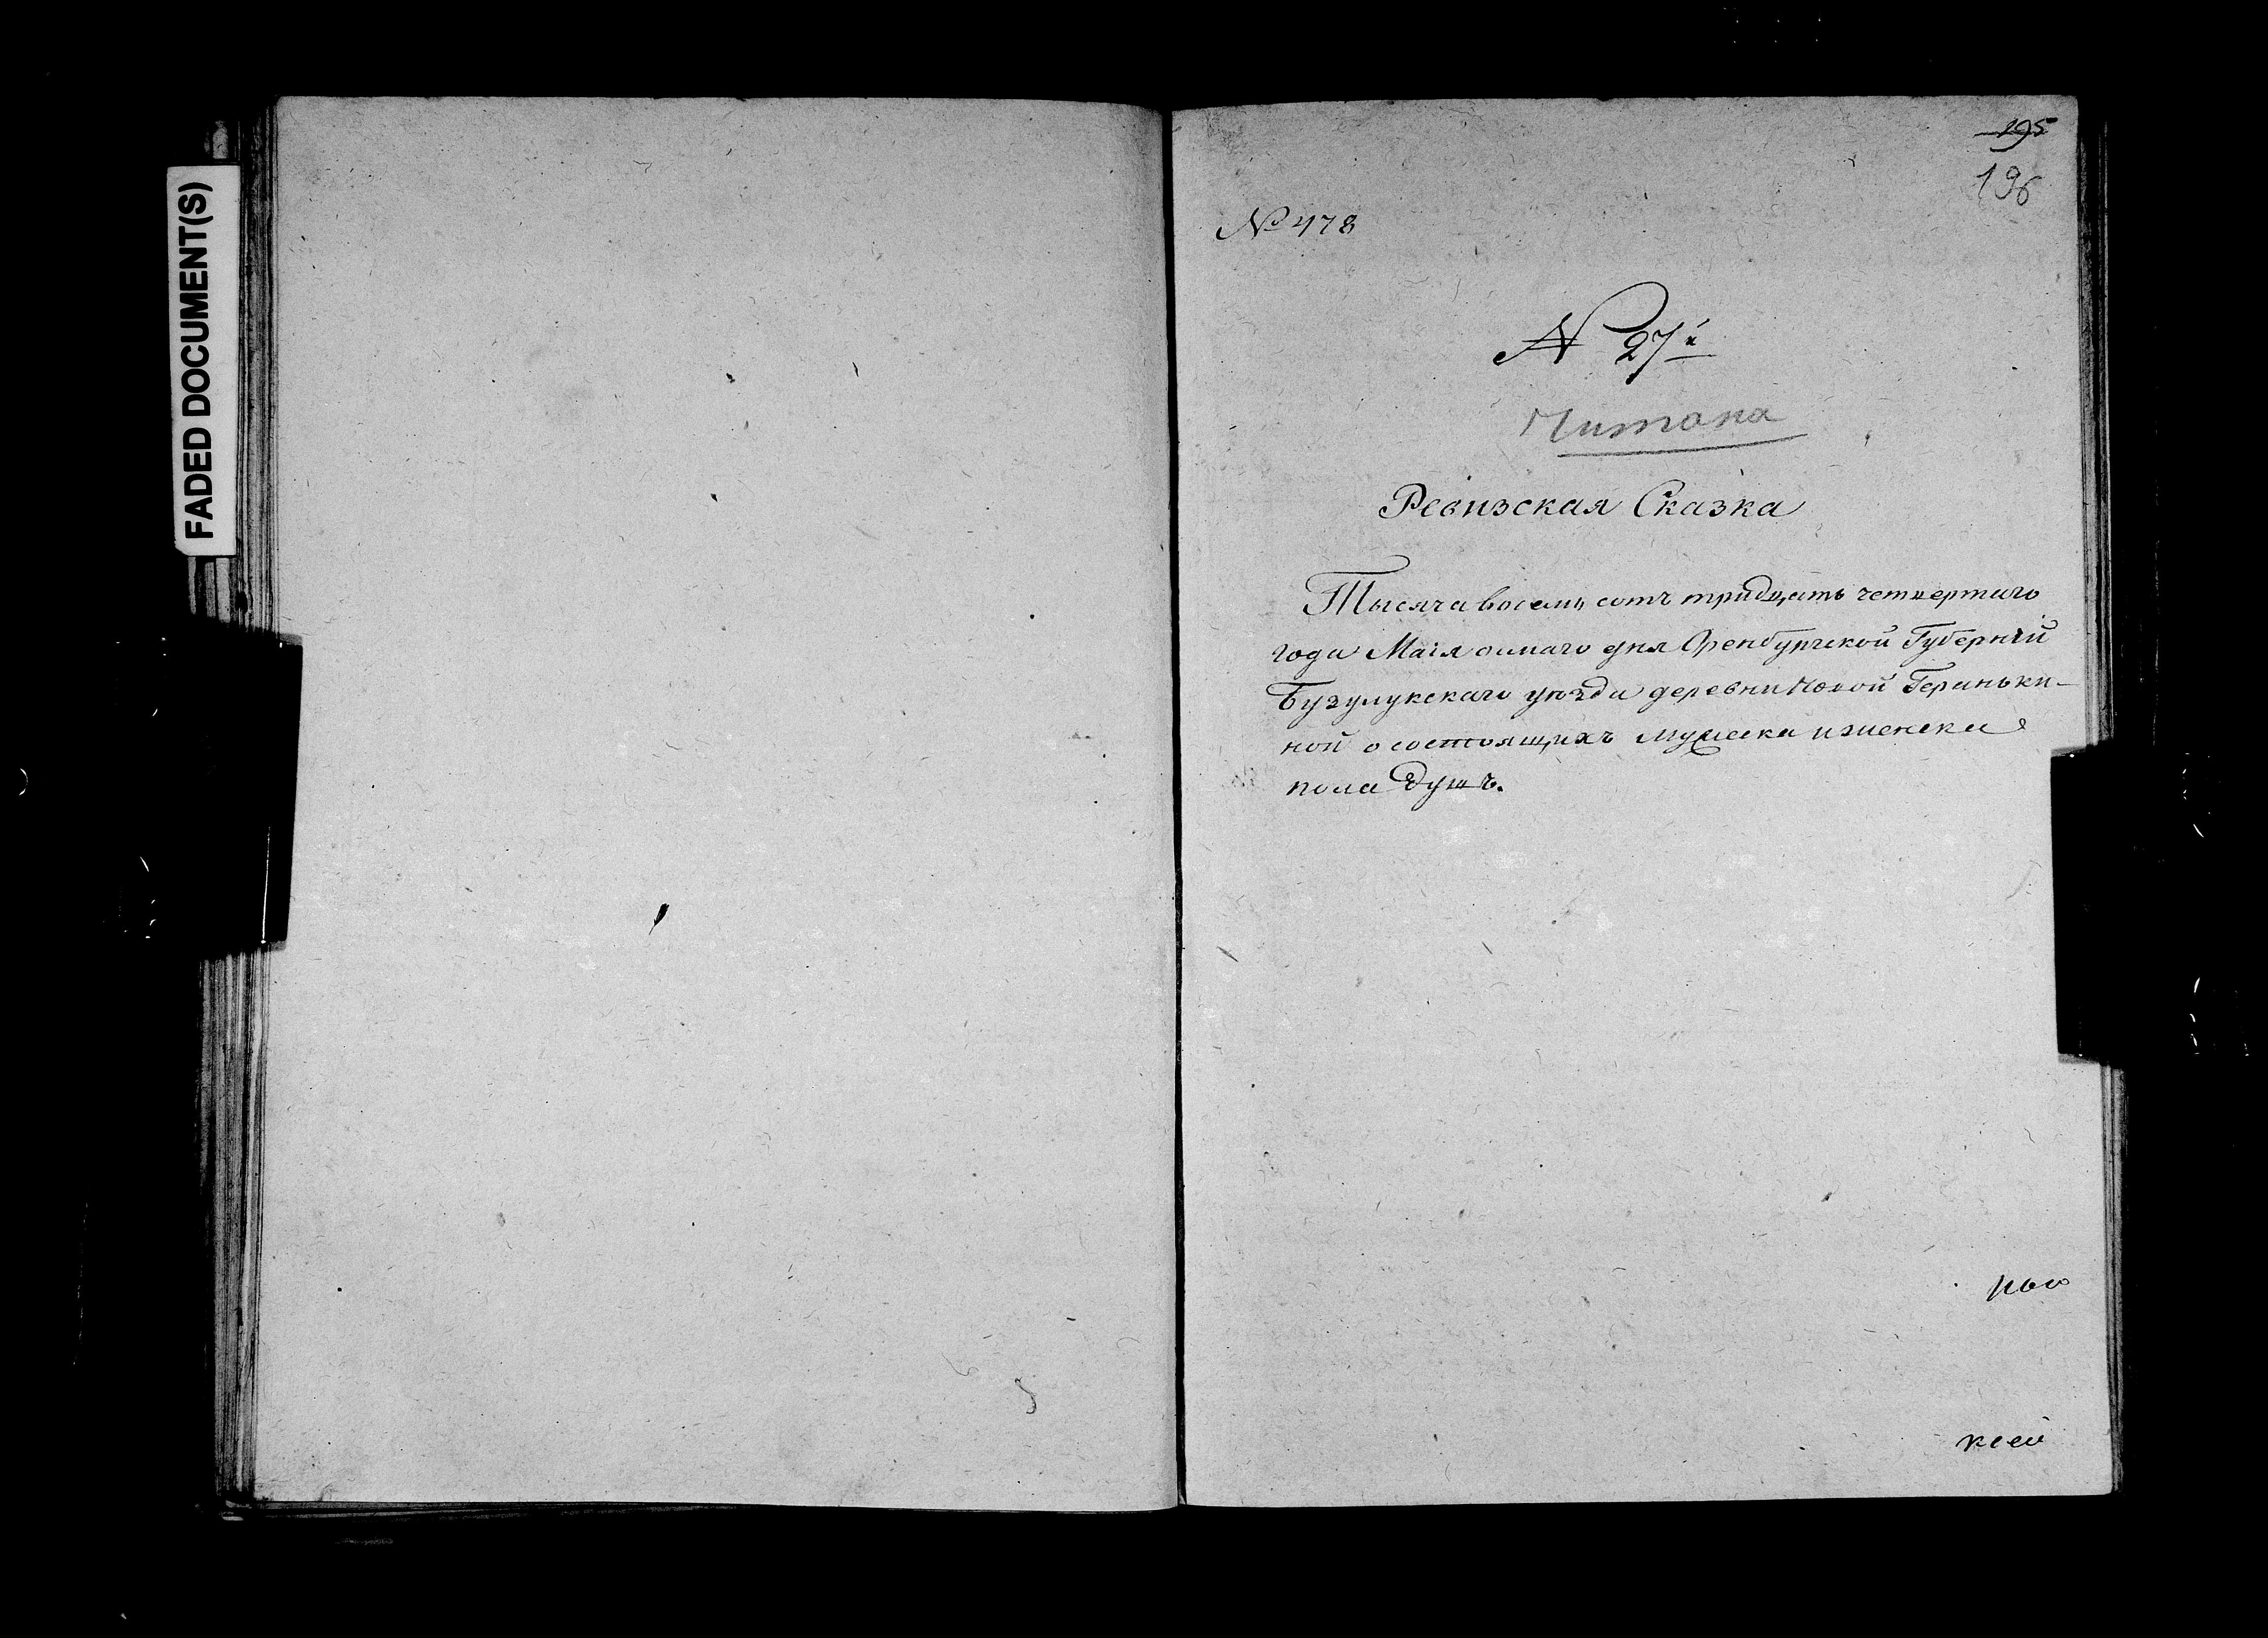 FADED DOCUMENT(S)
195
196
№ 478
№ 27й
Читана
Ревизская Сказка
Тысяча восемь сотъ тридцать четвертаго
года Маія осмаго дня Оренбургской Губерніи
Бузулукскаго уѣзда деревни Новой Геранькі-
ной о состоящихъ мужеска и женска
пола душъ.